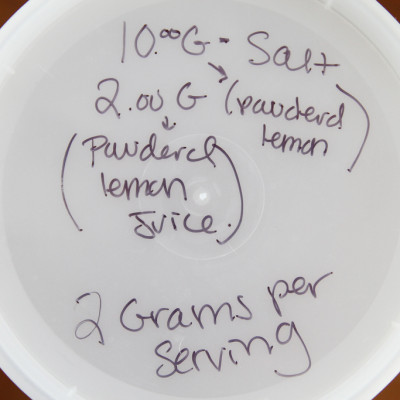 10.00G - Salt
2.00 G (pauderd
lemon)
(Pauderd
lemon
Juice.)
2 Grams per
Serving